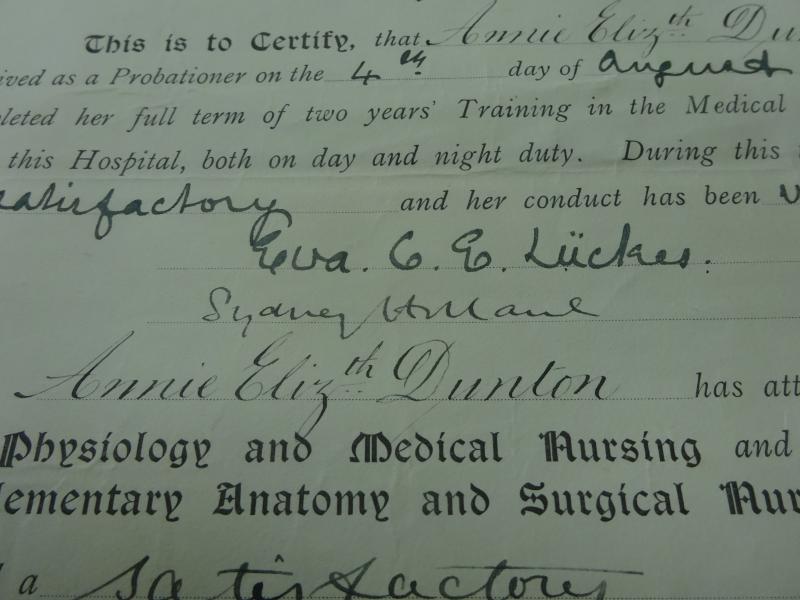 This is to Certify, that Annie Elizth Dun
ived as a Probationer on the 4th day of August
leted her full term of two years' Training in the Medical
this Hospital, both on day and night duty. During this
satisfactory and her conduct has been v
Eva. C. E. Lückes.
Sydney Holland
Annie Elizth Dunton has att
Physiology and Medical Nursing and
lementary Anatomy and Surgical Nur
a satisfactory